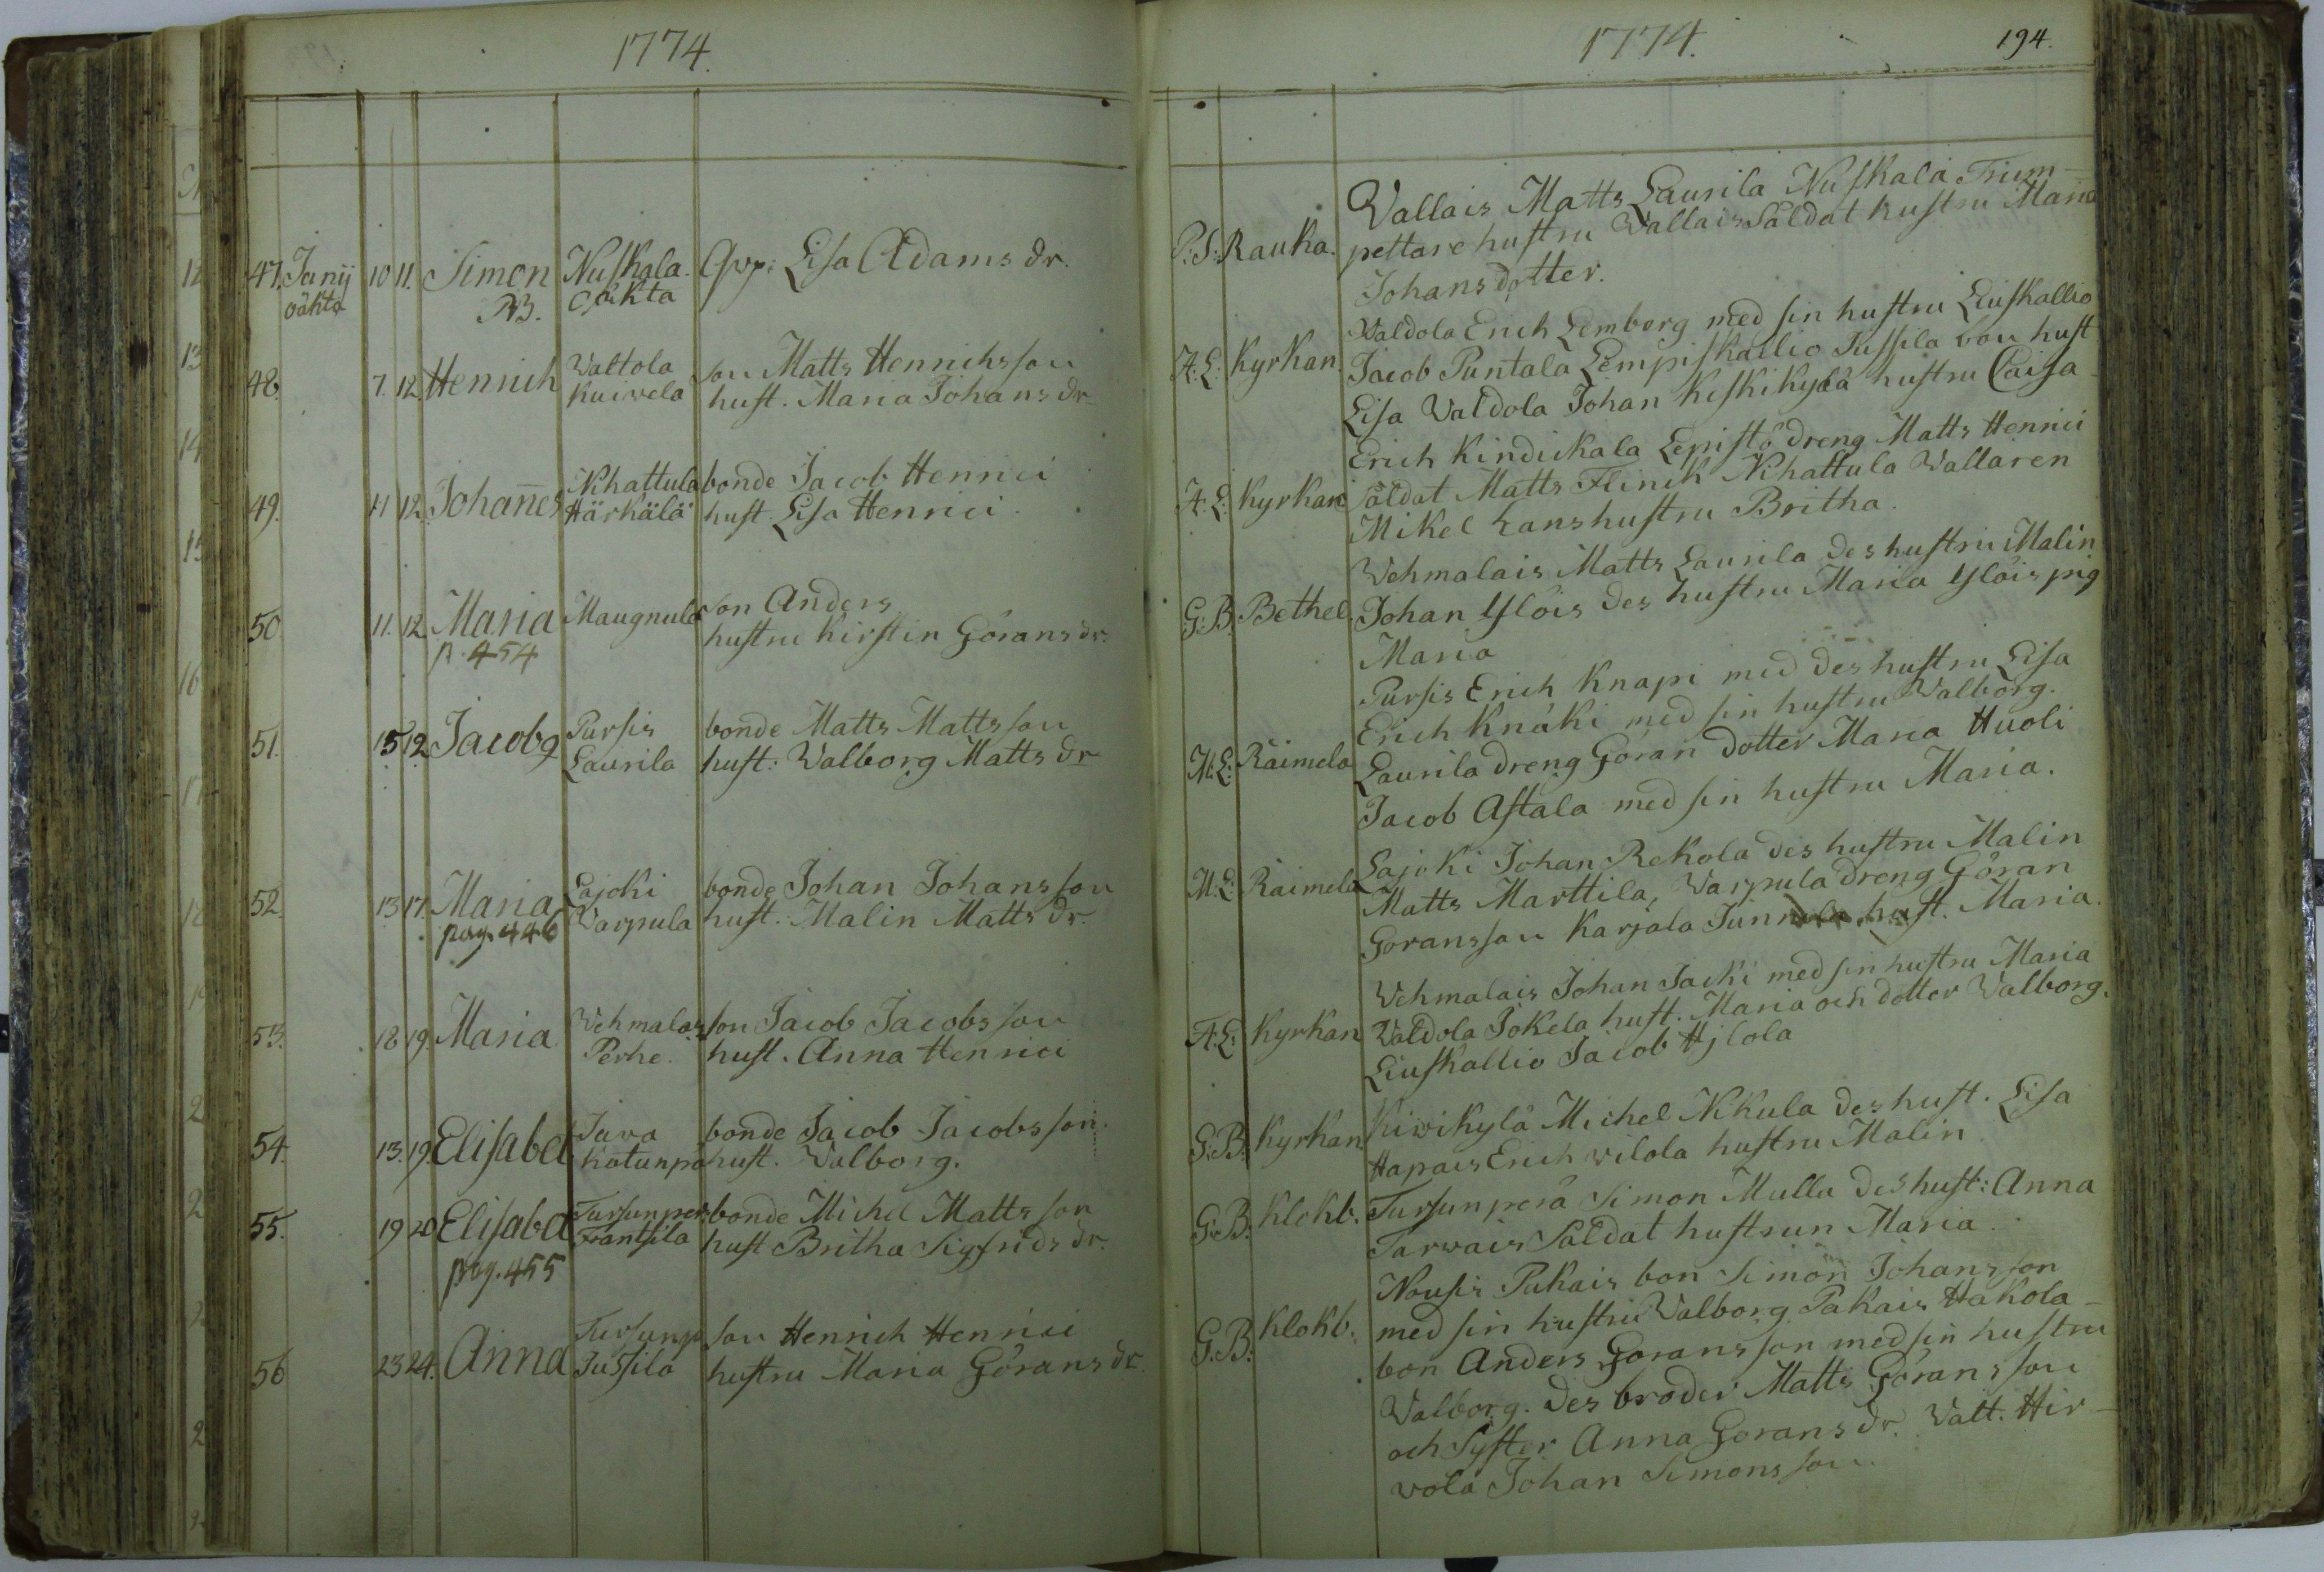 1774.
47. Junij 10 11. Simon Nuskala. Qvp: Lisa Adams dr.
oäkta NB. oäkta
48. 7. 12. Henrich Waltola son Matts Henrichsson
Kuivela hust. Maria Johans dr
49. 11 12. Johannes Nihattula bonde Jacob Henrici
Härkälä hust. Lisa Henrici
50. 11. 12. Maria Maugnula son Anders
p. 454 hustru Kirstin Görans dr.
51. 15 12 Jacob Pursis bonde Matts Mattsson
Laurila hust: Walborg Matts dr
52. 13 17. Maria Lajoki bonde Johan Johansson
pag. 446 Warpula hust. Malin Matts dr.
53. 18 19. Maria Vehmalais son Jacob Jacobsson
Perhe. hust. Anna Henrici
54. 13. 19. Elisabet Juva bonde Jacob Jacobsson.
Katunpä hust. Valborg.
55. 19 20 Elisabet Tursunper. bonde Michel Mattsson
Frantsila hust Britha Sigfrids dr.
pag. 455
56 23 24. Anna Tursunp son Henrich Henrici
Jussila hustru Maria Görans dr.
1774. 194.
Vallais Matts Laurila Nuskala Trum-
P: S: Rauka. pettare hustru Wallais Såldat hustru Maria
Johans dotter.
Waldola Erich Lemberg med sin hustru Liuskallio
A: L: Kyrkan. Jacob Puntala Lempiskallio Jussila bon hust
Lisa Valdola Johan Keskikylä hustru Caisa
Erich Kindikala Lepistö dreng Matts Henrici
A: L: Kyrkan såldat Matts Flinck Nihattula Wallaren
Mikel hans hustru Britha.
Vehmalais Matts Laurila des hustru Malin
G: B. Bethel. Johan Ylöis des hustru Maria Ylöis pig
Maria
Pursis Erich Knapi med des hustru Lisa
Erich Knäki med sin hustru Valborg.
M: L: Räimela Laurila dreng Göran dotter Maria Huoli
Jacob Astala med sin hustru Maria.
M: L: Räimela Lajoki Johan Rekola des hustru Malin
Matts Marttila, Varpula dreng Göran
Göransson Karjala hust. Maria.
Vehmalais Johan Jacki med sin hustru Maria
A: L: Kyrkan Valdola Jokela hust. Maria och dotter Valborg.
Liuskallio Jacob Hjlola
G: B: Kyrkan Kiwikylä Michel Nikula des hust. Lisa
Hapais Erich wilola hustru Malin
G: B. Klokb. Tursunperä Simon Mulla des hust: Anna
Tarvais Såldat hustrun Maria.
Nousis Pukais bon Simon Johansson
G: B: Klokb. med sin hustru Valborg Pakais Hakola-
bon Anders Göransson med sin hustru
Valborg. des broder Matts Göransson
och Syster Anna Görans dr. Valt. Hir-
vola Johan Simonsson